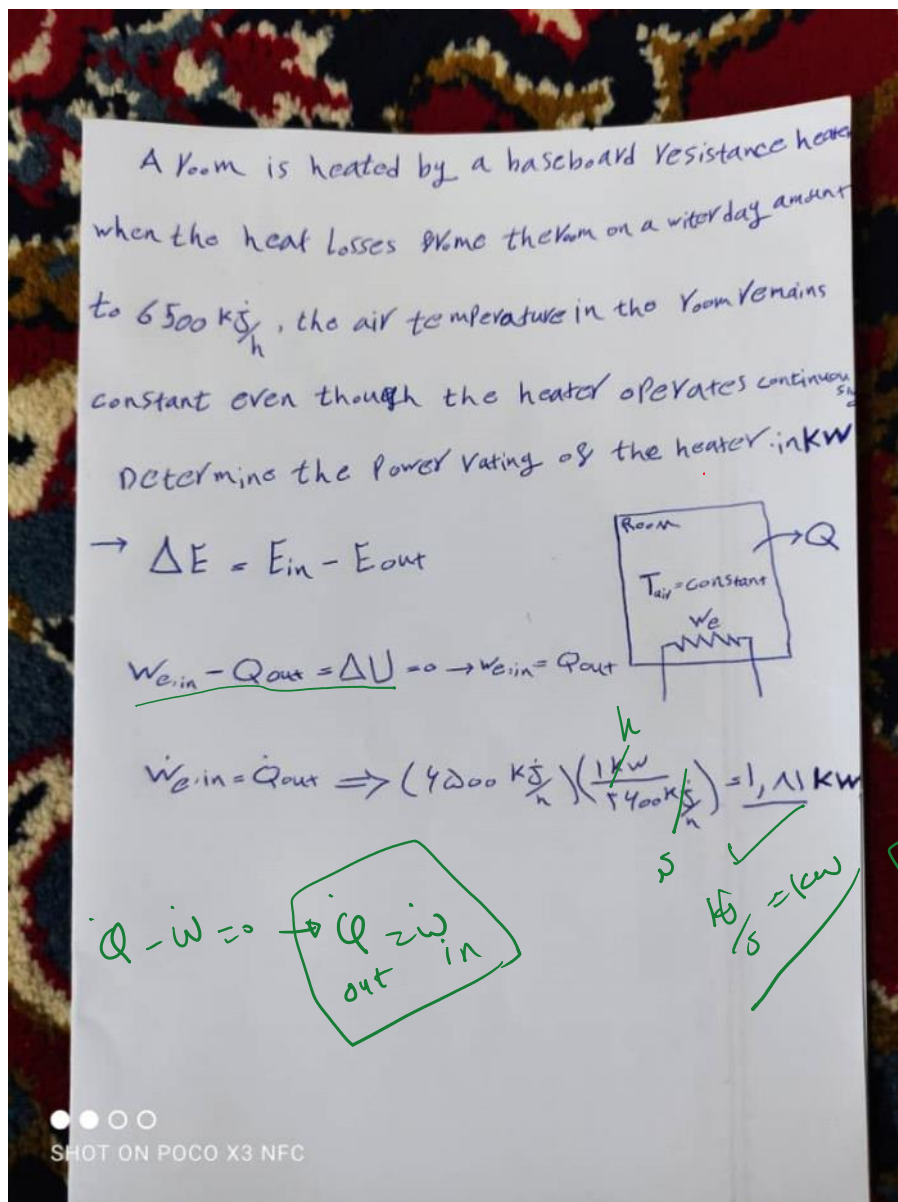 A room is heated by a baseboard resistance heater
when the heat Losses frome the room on a witer day amount
to 6500 kj/h, the air temperature in the room remains
constant even though the heater operates continuously
Determine the Power rating of the heater in kW
→ ΔE = Ein - Eout
Room
→Q
Tair = constant
We
We,in - Qout = ΔU = 0 → We,in = Qout
Ẇe,in = Q̇out ⇒ (۶۵۰۰ kj/h)(1kW/۳۶۰۰ kj/h) = ۱,۸۱ kW
h
s
kj/s = kw
Q̇ - ẇ = 0 → Q̇out = ẇin
SHOT ON POCO X3 NFC